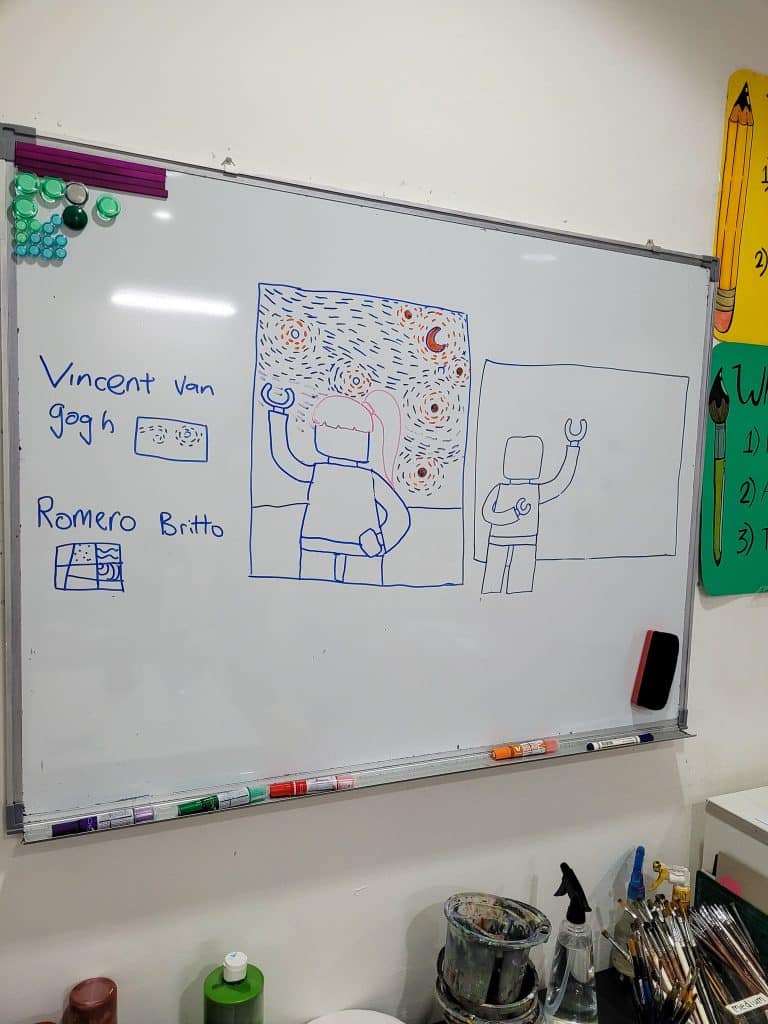 Vincent van
gogh
Romero Britto
1)
2)
1)
2)
3)
medium